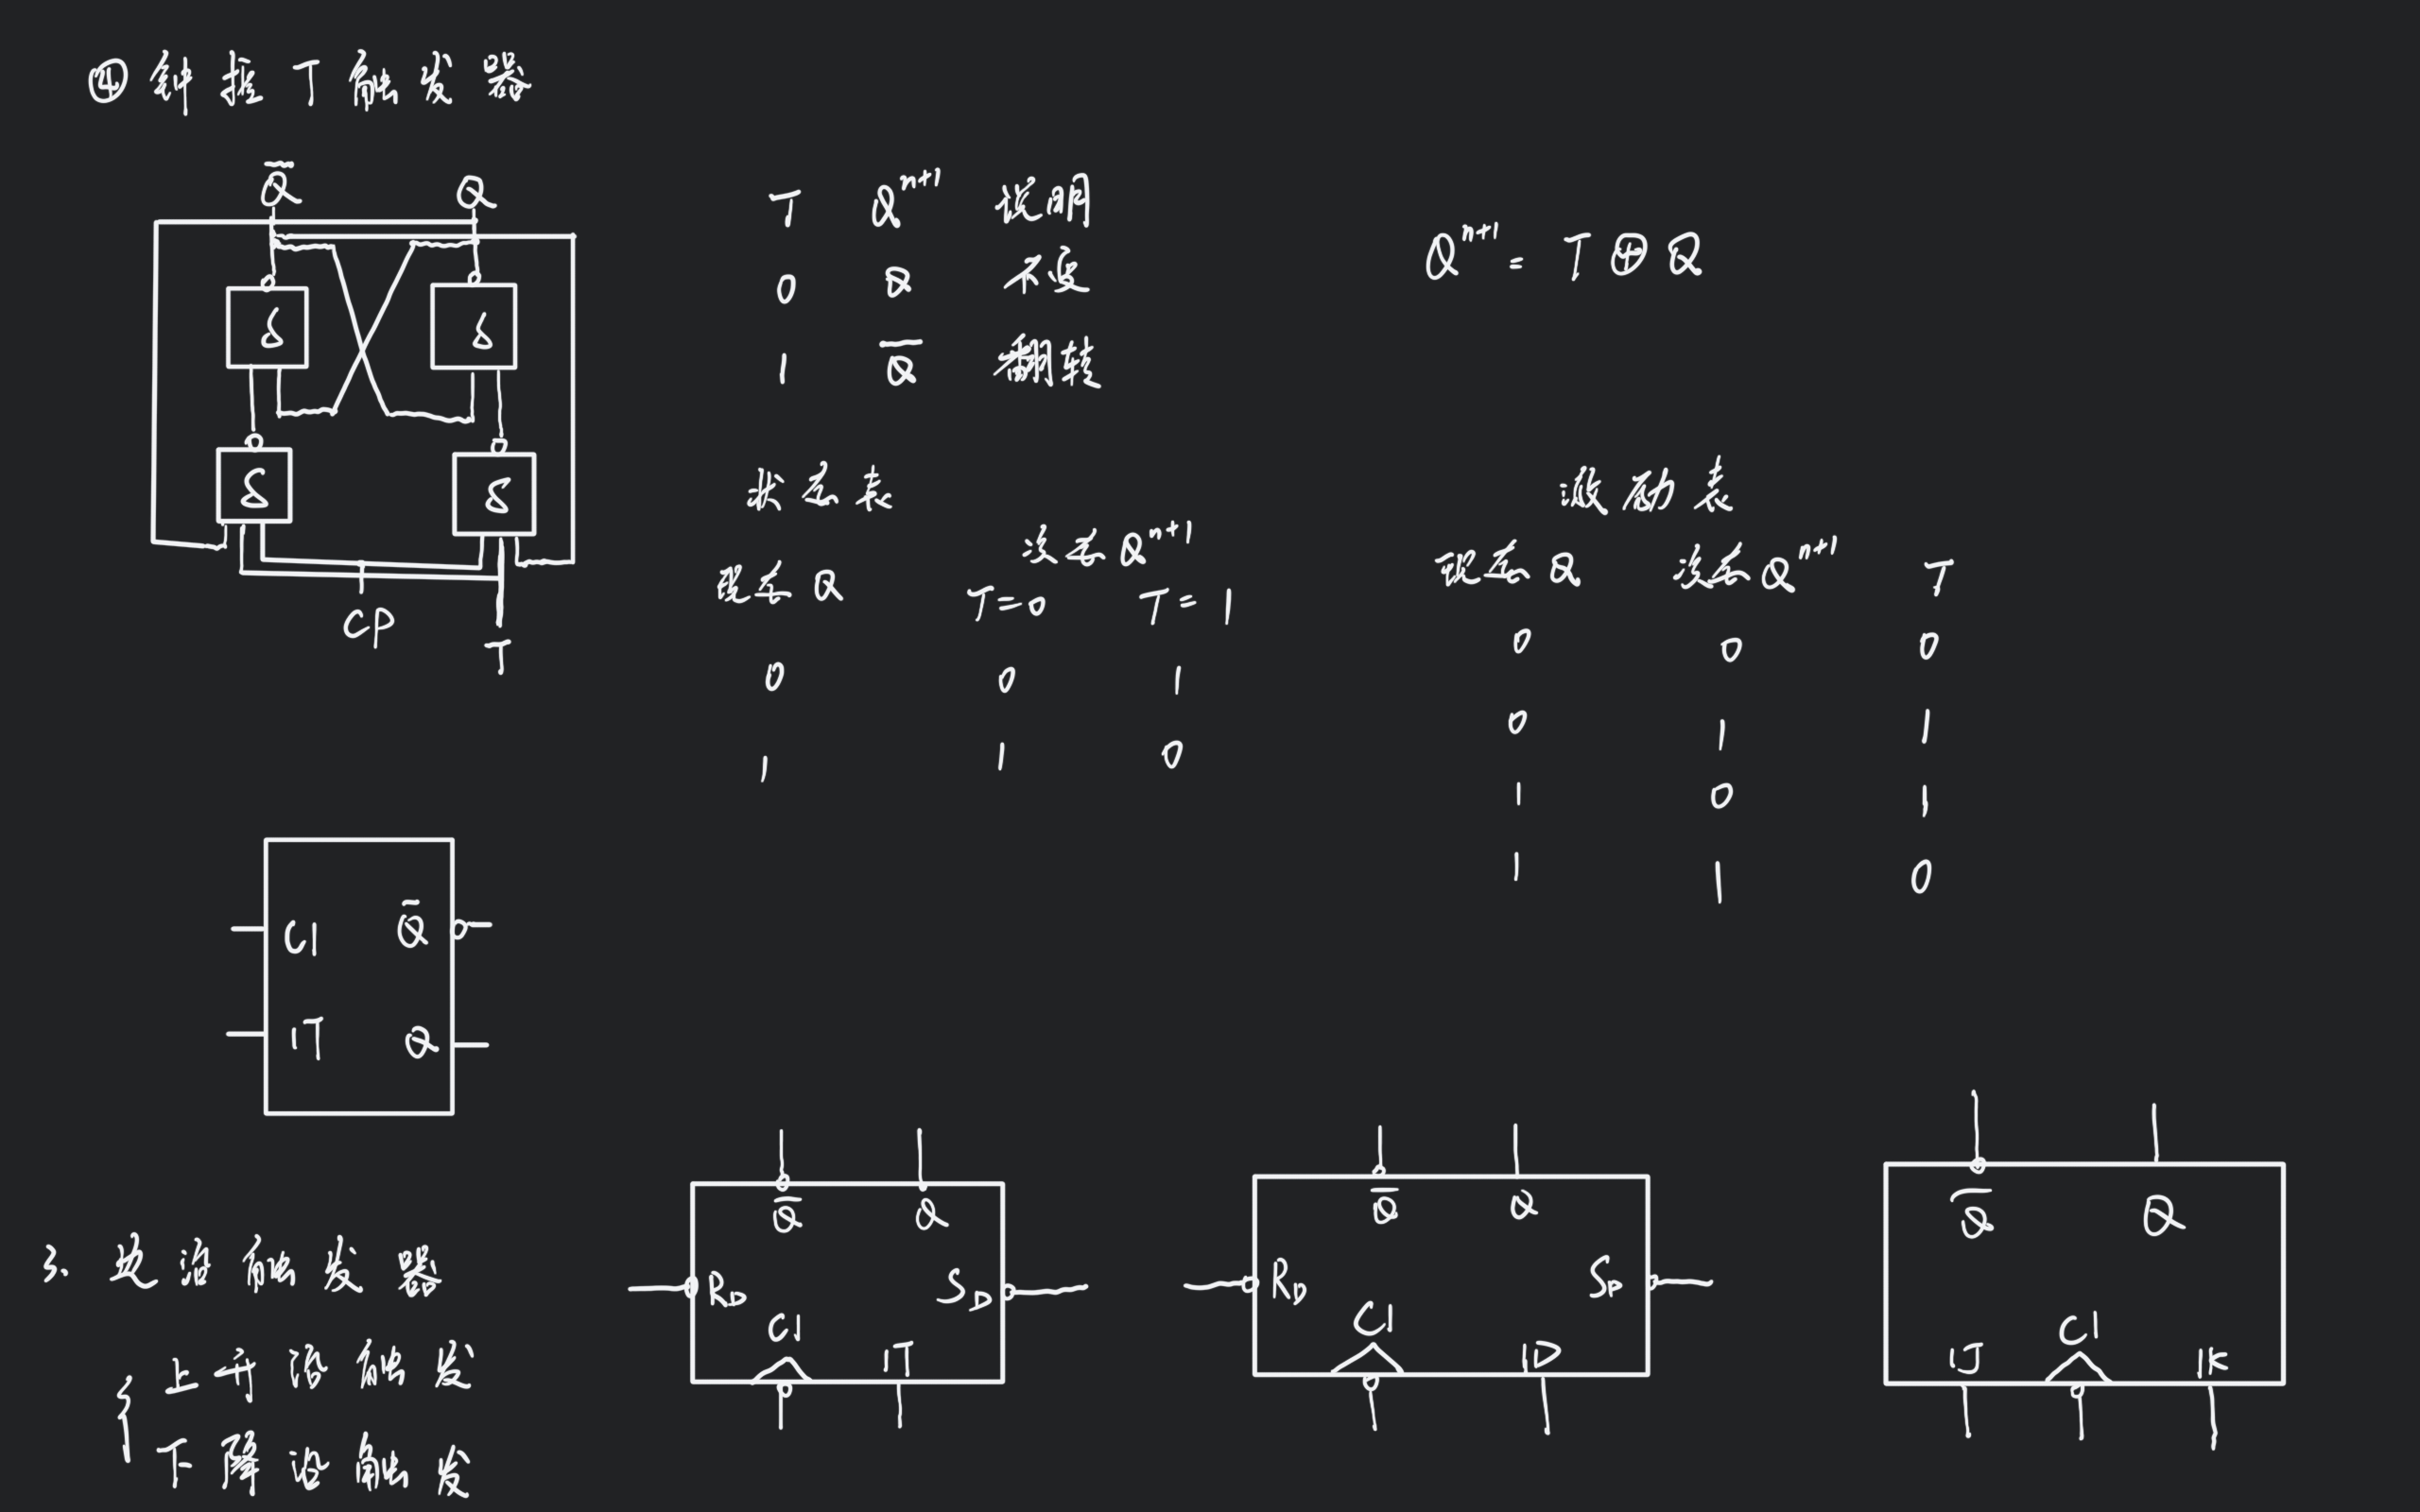 ④ 钟控T触发器
Q̅ Q
& &
& &
CP
T
T Qⁿ⁺¹ 说明
0 Q 不变
1 Q̅ 翻转
Qⁿ⁺¹ = T ⊕ Q
状态表
次态Qⁿ⁺¹
现态Q T=0 T=1
0 0 1
1 1 0
激励表
现态Q 次态Qⁿ⁺¹ T
0 0 0
0 1 1
1 0 1
1 1 0
C1 Q̅
1T Q
3. 边沿触发器
上升沿触发
下降沿触发
Q̅ Q
R_D S_D
C1 1T
Q̅ Q
R_D S_D
C1 1D
Q̅ Q
1J C1 1K